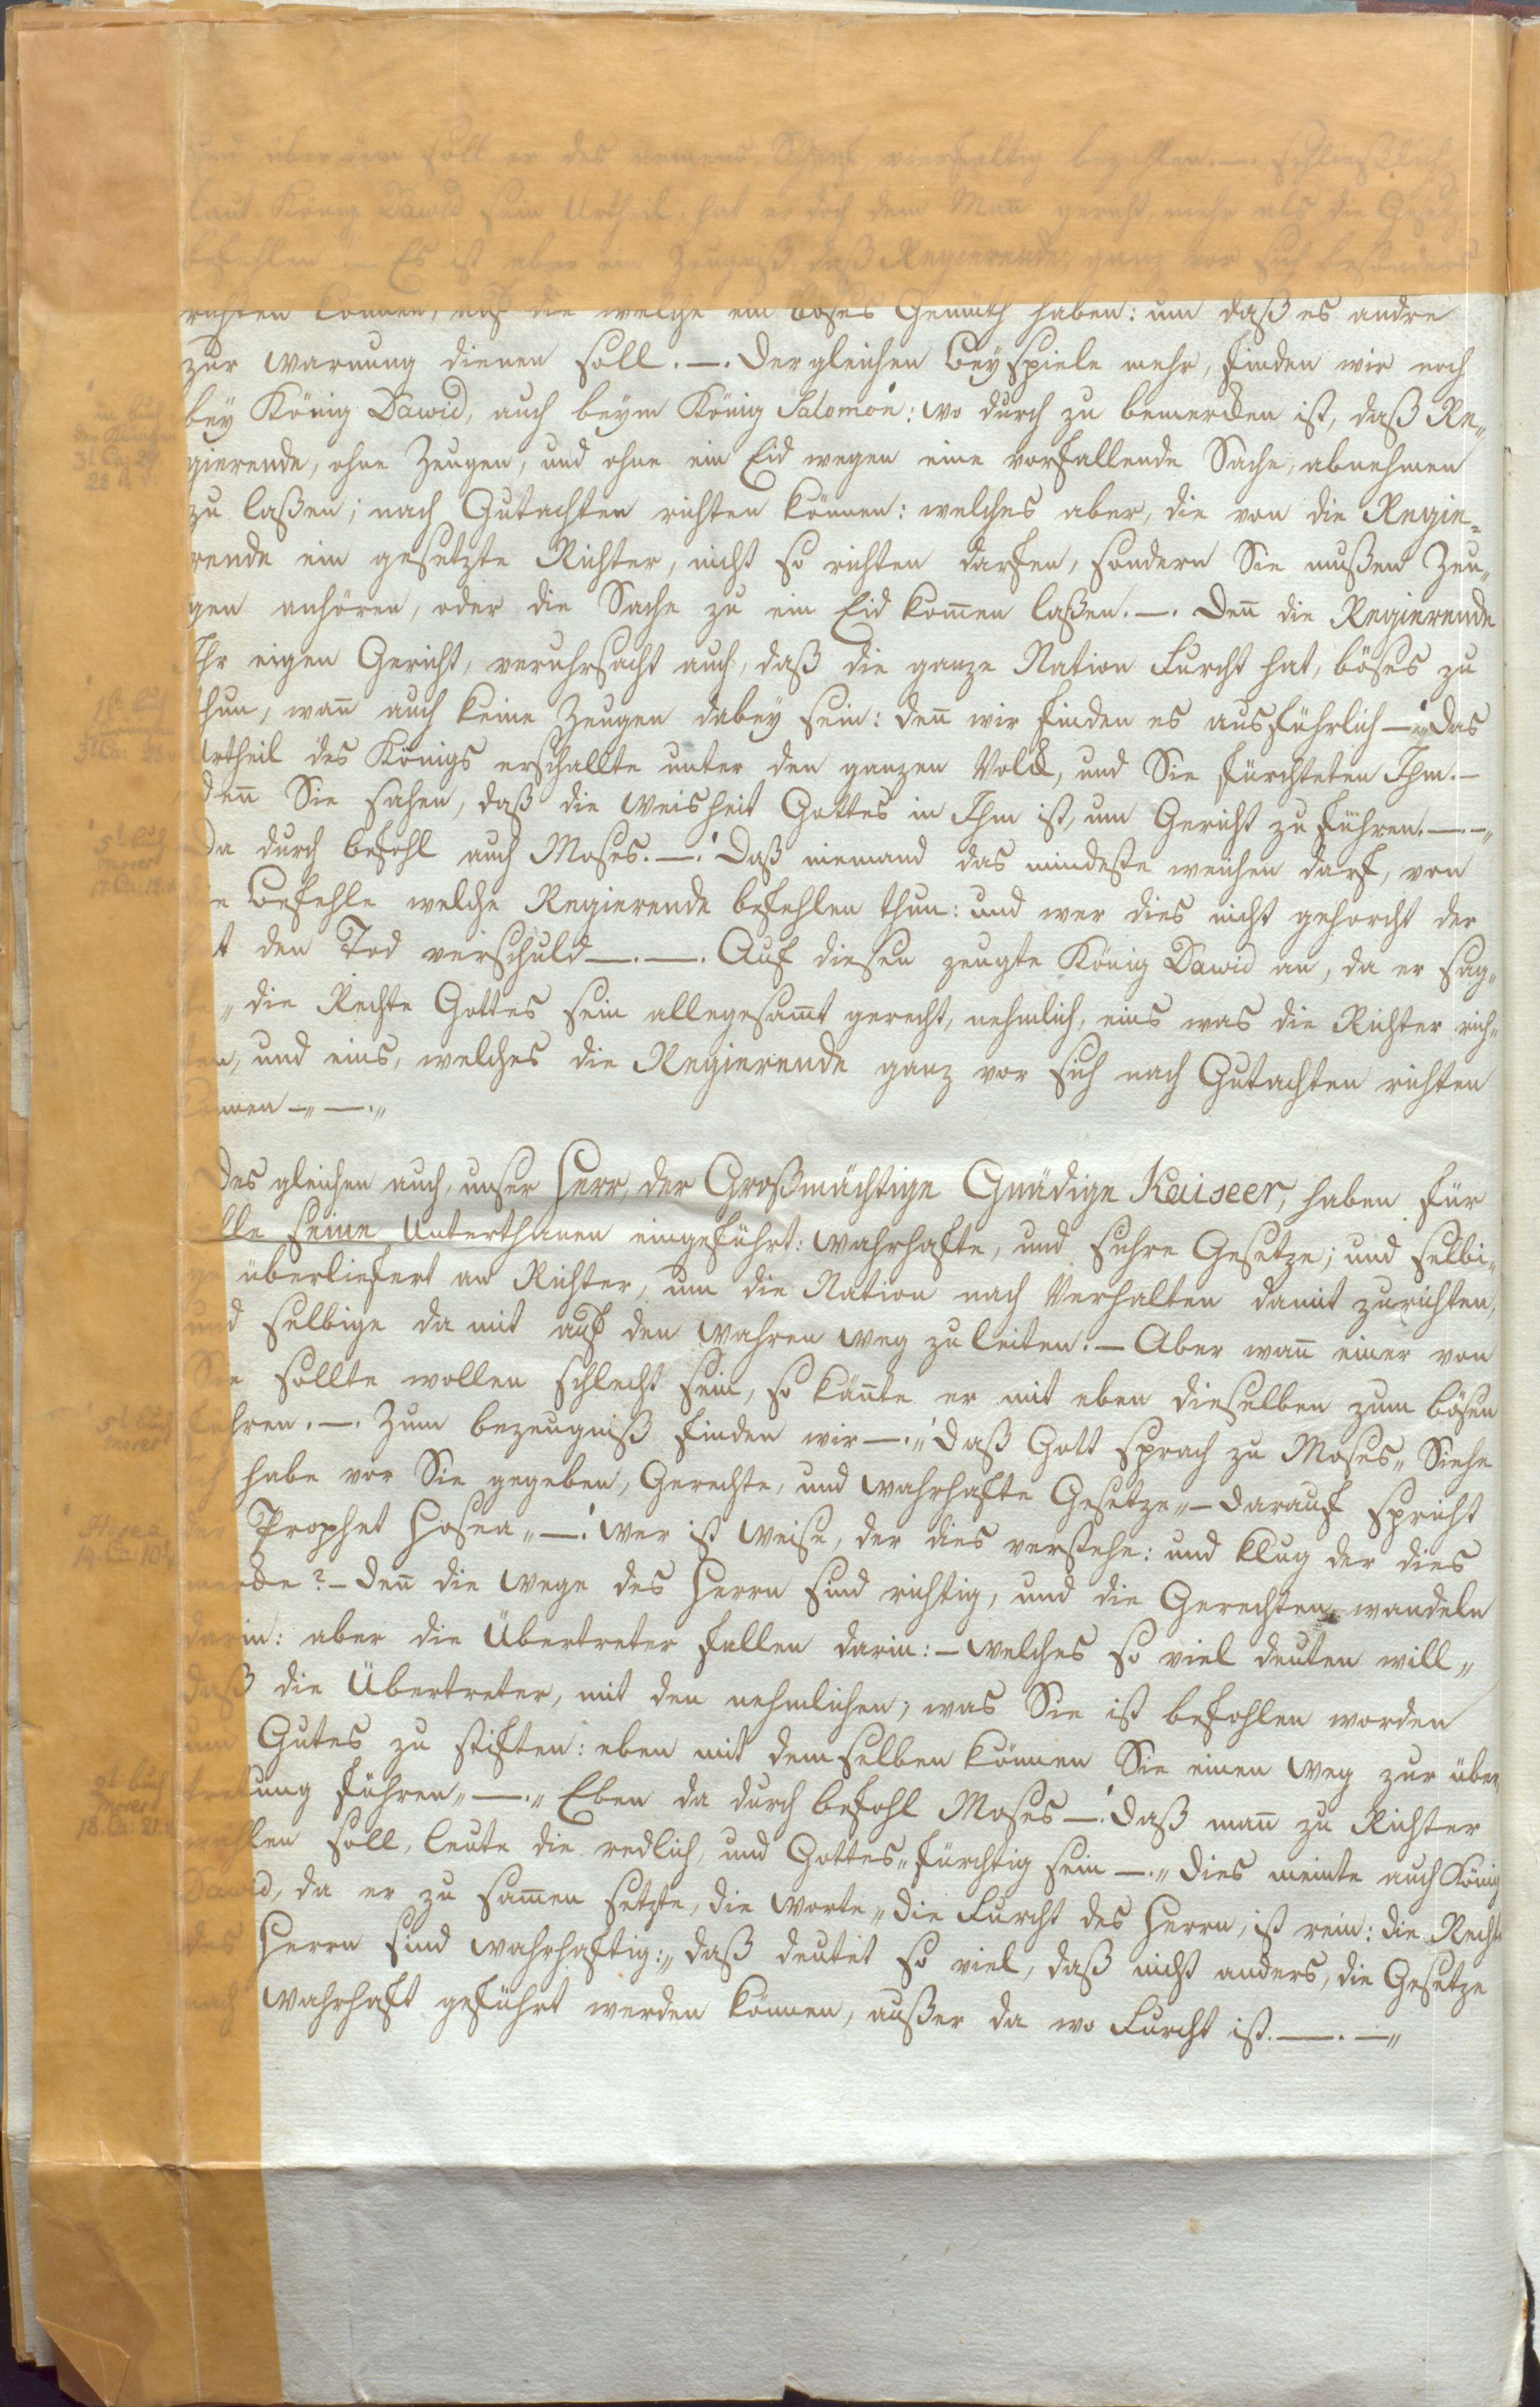 und über dem soll er des armens Schaf, vierfaltig bezahlen.—. schließlich
laut König Dawid sein Urtheil, hat er doch dem Man gericht, mehr als die Gesetze
befehlen — Es ist aber ein Zeugniß daß Regierende, ganz vor sich besonders
richten können, auf die welche ein böses Gemüth haben: um daß es andre
zur Warnung dienen soll.—. Dergleichen Beyspiele mehr, finden wir noch
bey König Dawid, auch beym König Salomon: wo durch zu bemercken ist, daß Re„
gierende, ohne Zeugen, und ohne ein Eid wegen eine vorfallende Sache, abnehmen
zu laßen; nach Gutachten richten können: welches aber, die von die Regie„
rende ein gesetzte Richter, nicht so richten darfen, sondern Sie mußen Zeu„
gen anhören, oder die Sache zu ein Eid komen laßen.—. Den die Regierende
Ihr eigen Gericht, veruhrsacht auch, daß die ganze Nation Furcht hat, böses zu
thun, wan auch keine Zeugen dabey sein: den wir finden es ausführlich —„ Das
Urtheil des Königs erschallte unter den ganzen Volck, und Sie fürchteten Ihm.—
den Sie sahen, daß die Weisheit Gottes in Ihm ist, um Gericht zu führen.—.—„
Da durch befohl auch Moses.—. Daß niemand das mindeste weichen darf, von
die Befehle welche Regierende befehlen thun: und wer dies nicht gehorcht der
ist den Tod verschuld —.—. Auf diesen zeugte König Dawid an, da er sag„
te „ die Rechte Gottes sein allegesamt gerecht, nehmlich, eins was die Richter rich„
ten, und eins, welches die Regierende ganz vor sich nach Gutachten richten
können —„—.„
Des gleichen auch, unser Herr, der Großmächtige Gnädige Kaiseer, haben für
alle seine Unterthanen eingeführt: wahrhafte, und Gesetze; und selbi„
ge überliefert an Richter, um die Nation nach Verhalten damit zurichten,
und selbige da mit auf den wahren Weg zu leiten.— Aber wan einer von
Sie sollte wollen schlecht sein, so könte er mit eben dieselben zum bösen
führen.—. Zum bezeugniß finden wir —.„ daß Gott sprach zu Moses„ Siehe
Ich habe vor Sie gegeben, Gerechte, und wahrhafte Gesetze„— darauf spricht
der Prophet Hosea „—. wer ist weise, der dies verstehe: und klug der dies
mercke?— den die Wege des Herrn sind richtig, und die Gerechten wandeln
darin: aber die Übertreter fallen darin:— welches so viel deuten will„
daß die Übertreter, mit den nehmlichen, was Sie ist befohlen worden
um Gutes zu stiften: eben mit demselben können Sie einen Weg zur über„
tretung führen„—.„ Eben da durch befohl Moses —. daß man zu Richter
wählen soll, leute die redlich, und Gottes„fürchtig sein —.„ dies meinte auch König
Dawid, da er zu samen setzte, die Worte „ die Furcht des Herrn, ist rein: die Rechte
des Herrn sind wahrhaftig:„ daß deutet so viel, daß nicht anders, die Gesetze
nach wahrhaft geführt werden können, außer da wo Furcht ist.—.—„
im buch
der Könige
3t Ca:
28 v.
1st buch
3t Ca: 28 v
5t buch
Moses
17. Ca: 12. v.
5t buch
Moses
Hosea
14. Ca: 10 v
2t buch
Moses
18. Ca: 21. v